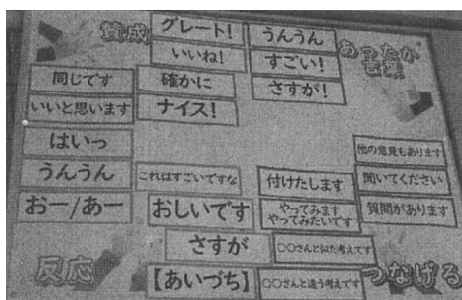 賛成
グレート!
うんうん
あったか
言葉
いいね!
すごい!
同じです
確かに
さすが!
いいと思います
ナイス!
はいっ
他の意見もあります
うんうん
これはすごいですな
付けたします
聞いてください
おー/あー
おしいです
やってみます
やってみたいです
質問があります
さすが
○○さんと似た考えです
反応
【あいづち】
○○さんと違う考えです
つなげる